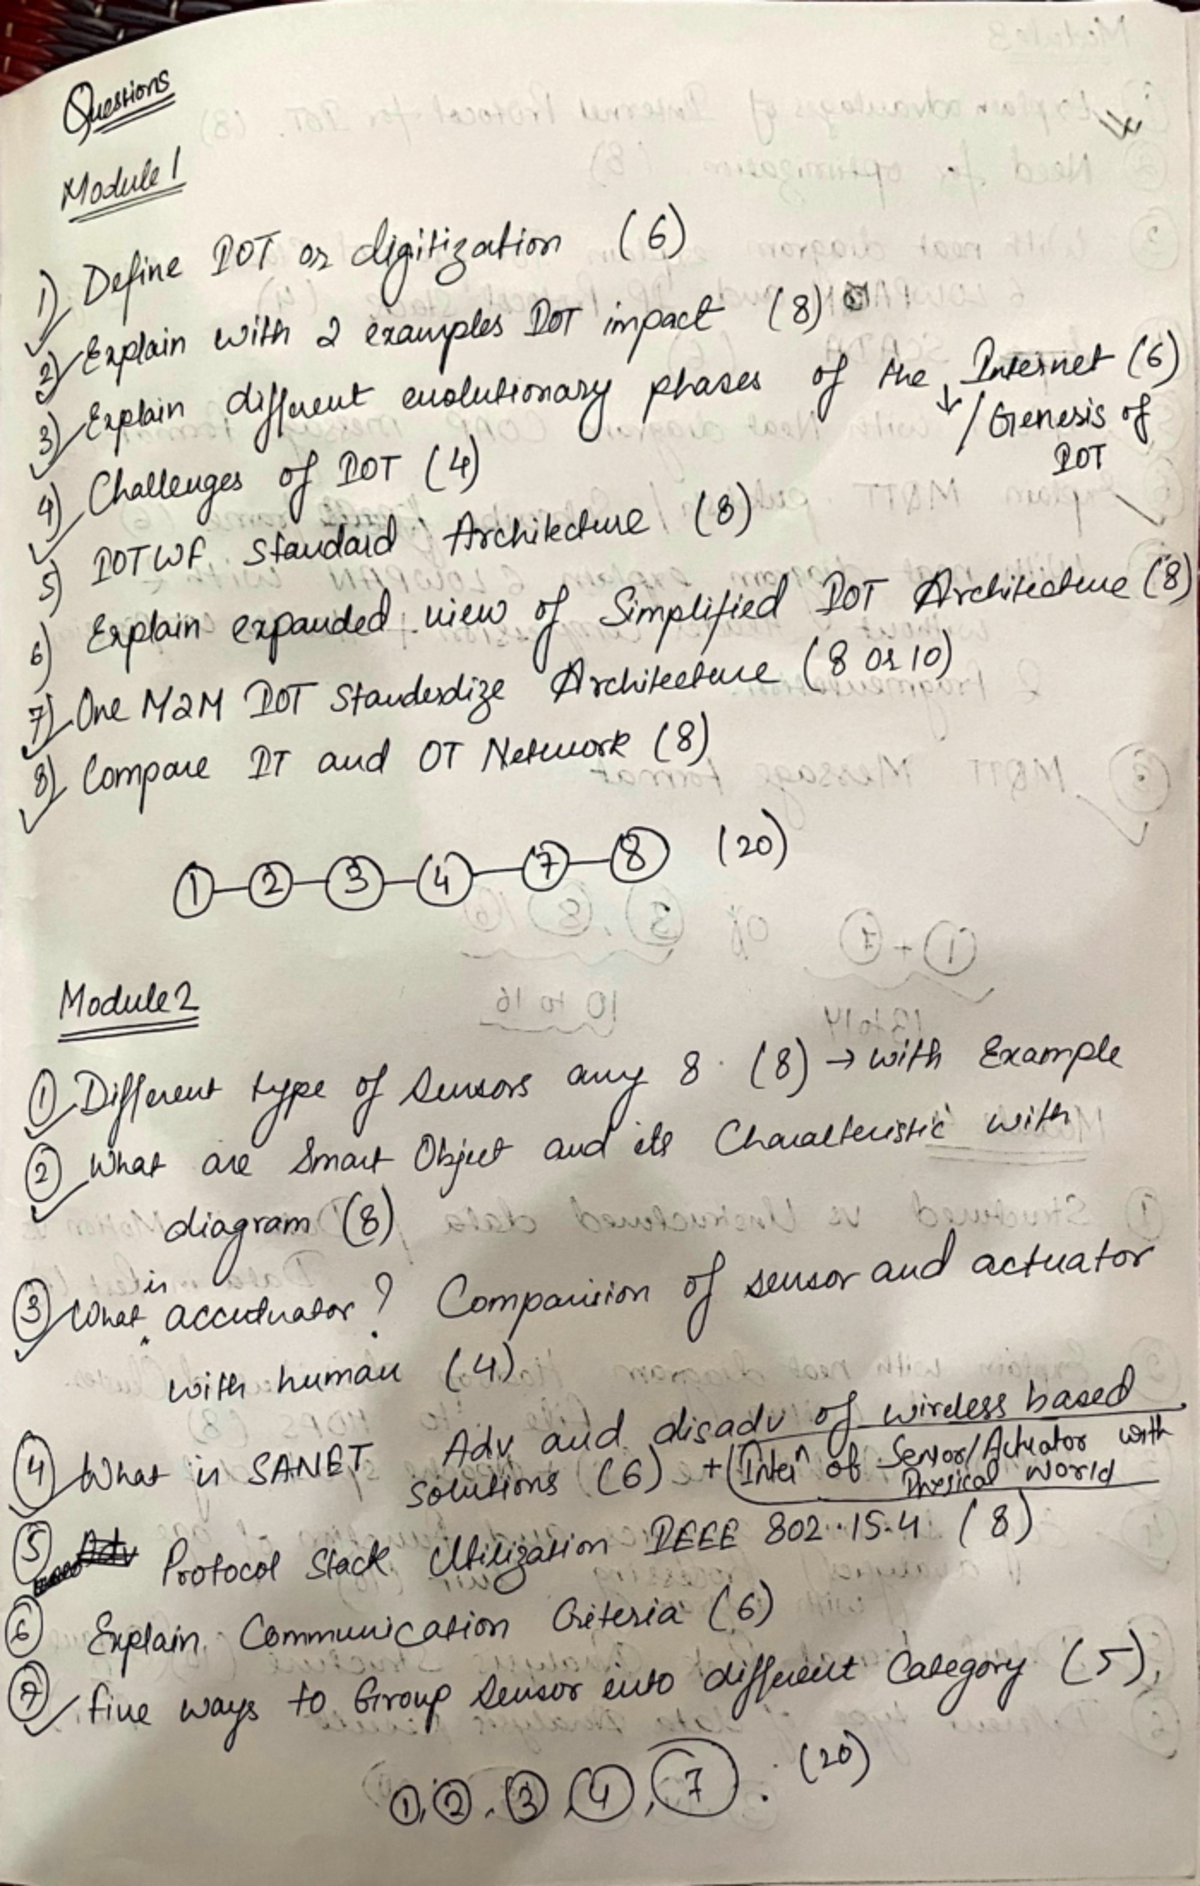 Questions
Module 1
1) Define IOT or digitization (6)
2) Explain with 2 examples IOT impact (8)
3) Explain different evolutionary phases of the Internet (6)
/ Genesis of
IOT
4) Challenges of IOT (4)
5) IOTWF Standard Architecture (8)
6) Explain expanded view of Simplified IOT Architecture (8)
7) One M2M IOT Standerdize Architecture (8 or 10)
8) Compare IT and OT Network (8)
1 - 2 - 3 - 4 - 7 - 8 (20)
Module 2
1 Different type of Sensors any 8. (8) → with Example
2 What are Smart Object and its Characteristic with
diagram (8)
3 What is accutuator? Comparision of sensor and actuator
with human (4)
4 What is SANET Adv and disadv of wireless based
solutions (6) + Inter^n of Sensor/Actuator with
Physical world
5 Protocol Stack Utilization IEEE 802.15.4 (8)
6 Explain Communication Criteria (6)
7 five ways to Group Sensor into different Category (5).
1, 2, 3, 4, 7. (20)